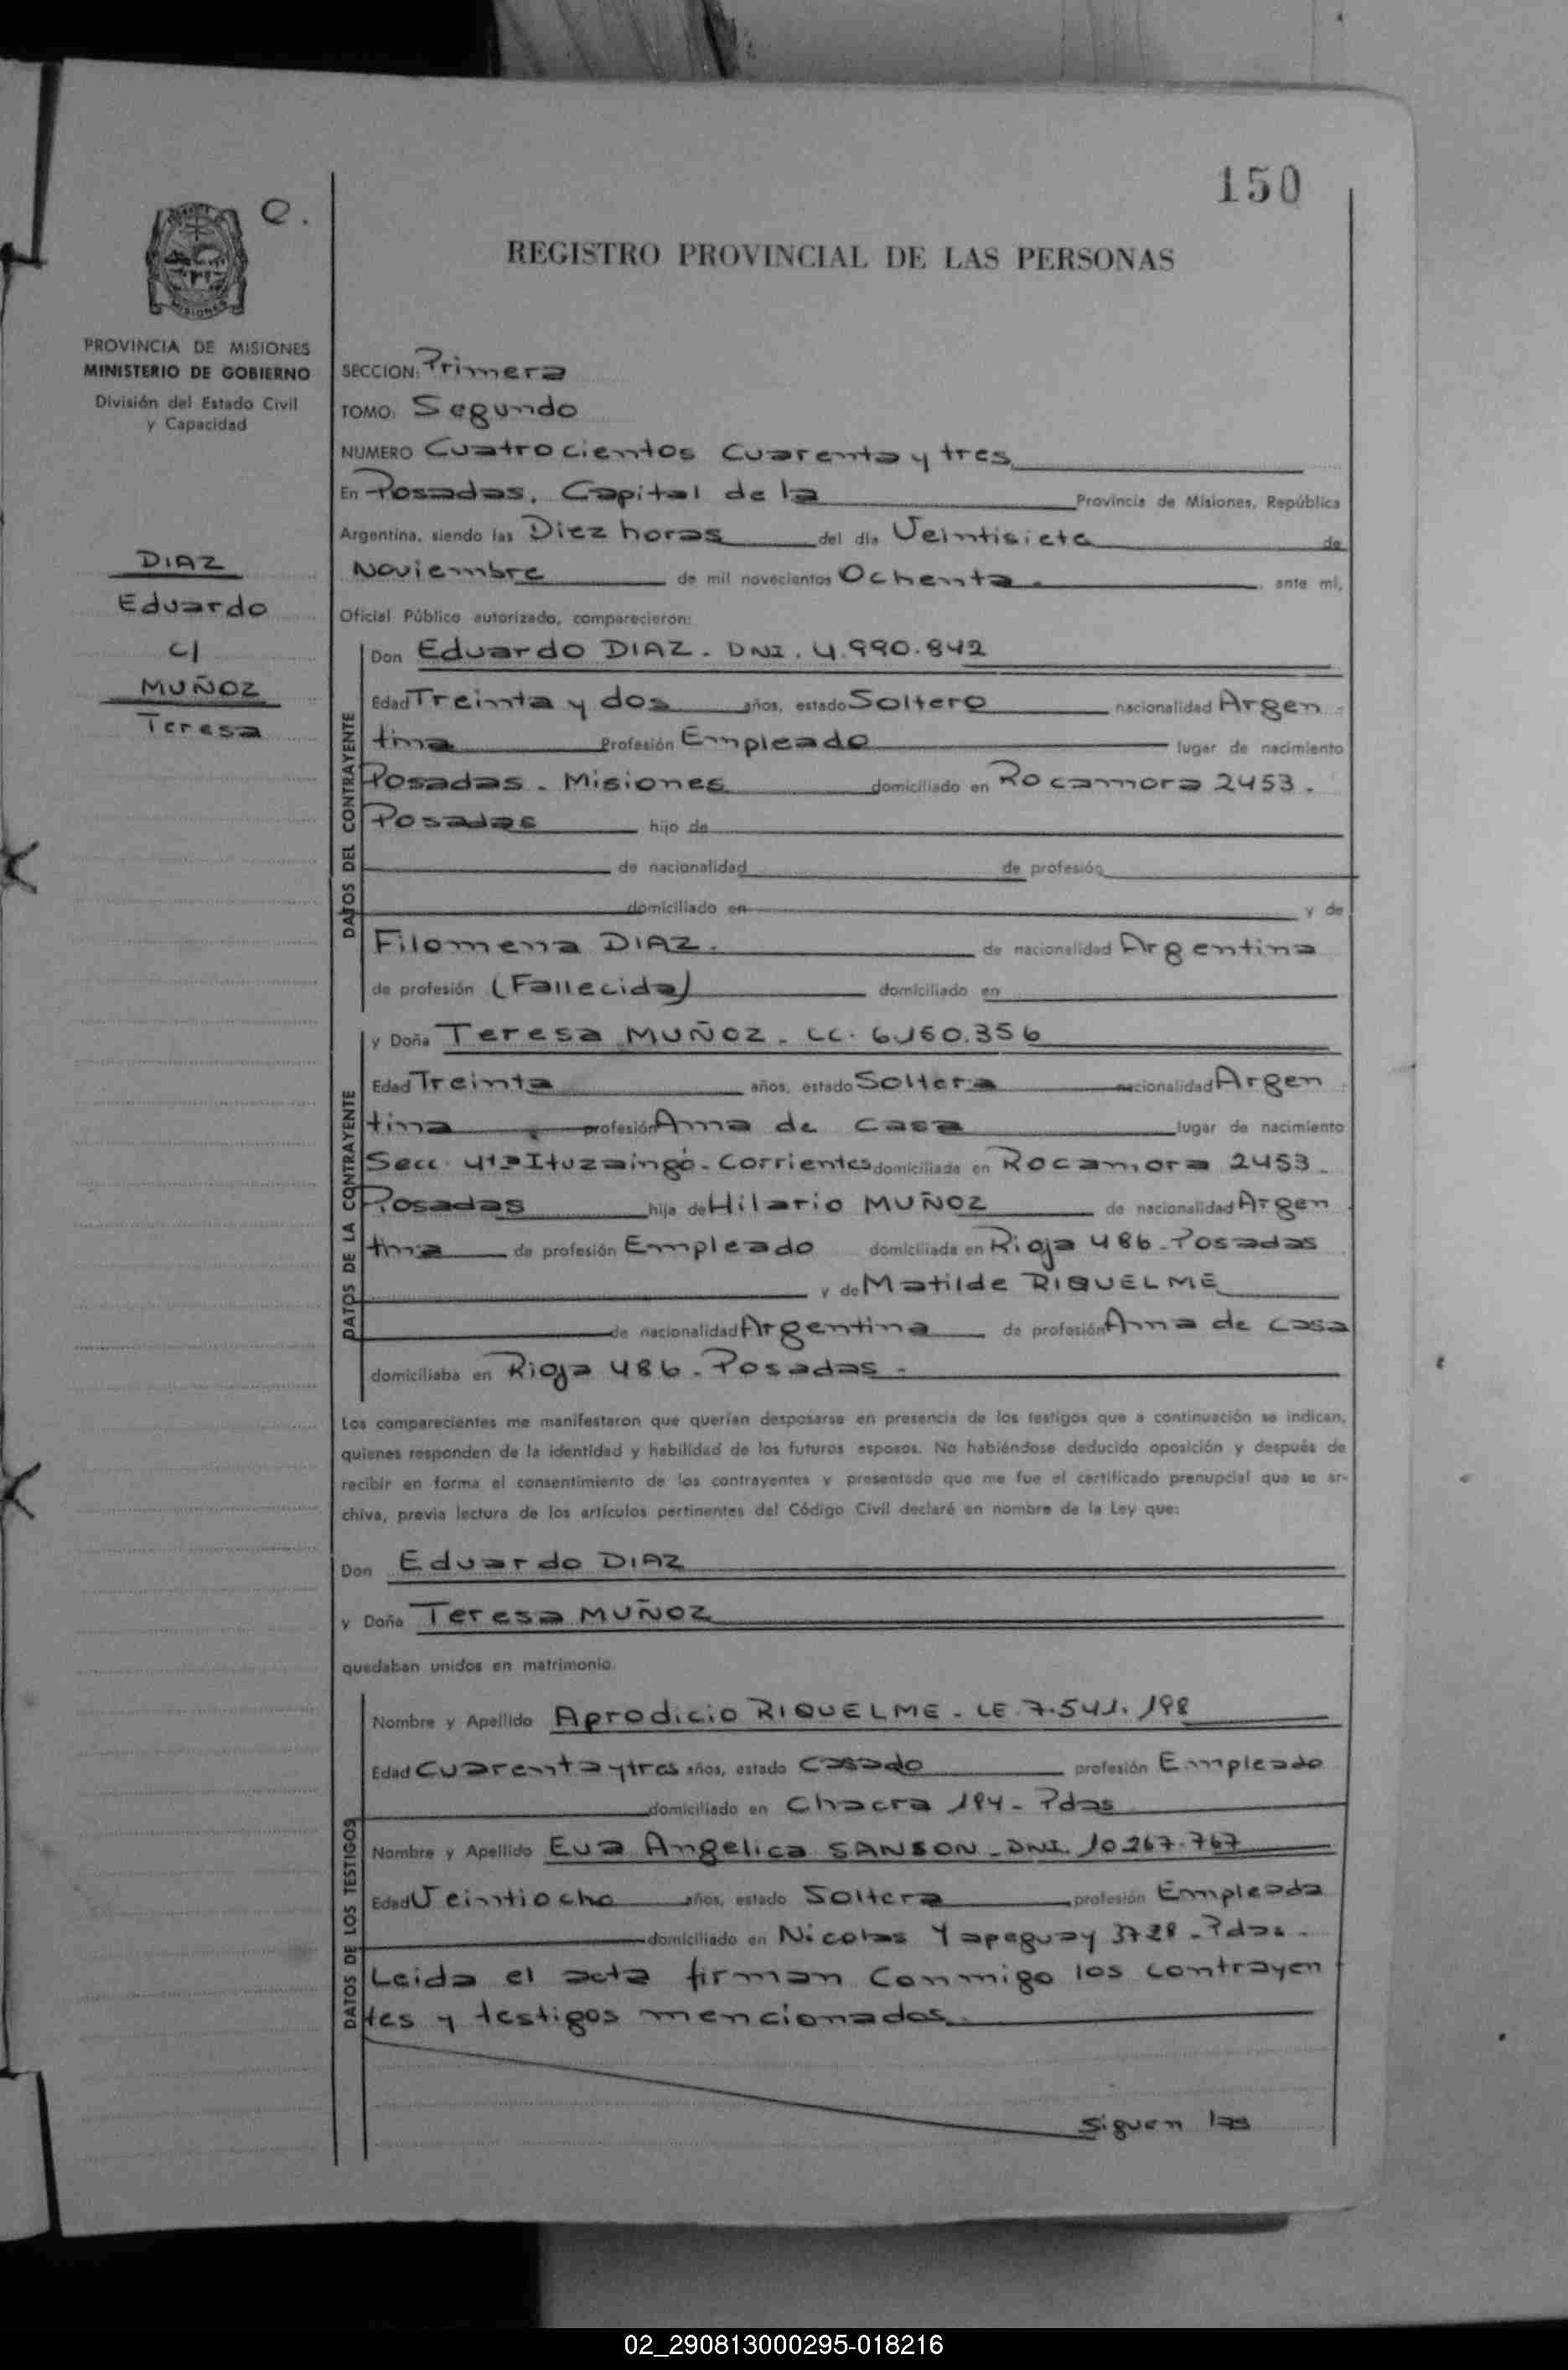 150
C.
REGISTRO PROVINCIAL DE LAS PERSONAS
MISIONES
PROVINCIA DE MISIONES
MINISTERIO DE GOBIERNO
División del Estado Civil
y Capacidad
DIAZ
Eduardo
c/
MUÑOZ
Teresa
SECCION: Primera
TOMO: Segundo
NUMERO Cuatrocientos Cuarenta y tres
En Posadas. Capital de la Provincia de Misiones, República
Argentina, siendo las Diez horas del día Veintisiete de
Noviembre de mil novecientos Ochenta. ante mí,
Oficial Público autorizado, comparecieron:
DATOS DEL CONTRAYENTE
Don Eduardo DIAZ - DNI. 4.990.842
Edad Treinta y dos años, estado Soltero nacionalidad Argen
tina Profesión Empleado lugar de nacimiento
Posadas - Misiones domiciliado en Rocamora 2453.
Posadas hijo de
de nacionalidad de profesión
domiciliado en y de
Filomena DIAZ. de nacionalidad Argentina
de profesión (Fallecida) domiciliado en
DATOS DE LA CONTRAYENTE
y Doña Teresa MUÑOZ - LC. 6.160.356
Edad Treinta años, estado Soltera nacionalidad Argen
tina profesión Ama de casa lugar de nacimiento
Secc. 4ta Ituzaingó - Corrientes domiciliada en Rocamora 2453.
Posadas hija de Hilario MUÑOZ de nacionalidad Argen
tina de profesión Empleado domiciliada en Rioja 486 - Posadas
y de Matilde RIQUELME
de nacionalidad Argentina de profesión Ama de casa
domiciliaba en Rioja 486 - Posadas -
Los comparecientes me manifestaron que querían desposarse en presencia de los testigos que a continuación se indican,
quienes responden de la identidad y habilidad de los futuros esposos. No habiéndose deducido oposición y después de
recibir en forma el consentimiento de los contrayentes y presentado que me fue el certificado prenupcial que se ar-
chiva, previa lectura de los artículos pertinentes del Código Civil declaré en nombre de la Ley que:
Don Eduardo DIAZ
y Doña Teresa MUÑOZ
quedaban unidos en matrimonio.
DATOS DE LOS TESTIGOS
Nombre y Apellido Aprodicio RIQUELME - LE. 7.541.198
Edad Cuarenta y tres años, estado Casado profesión Empleado
domiciliado en Chacra 194 - Pdas
Nombre y Apellido Eva Angelica SANSON - DNI. 10.267.767
Edad Veintiocho años, estado Soltera profesión Empleada
domiciliado en Nicolas Yapeguay 3728 - Pdas.
Leida el acta firman Conmigo los contrayen
tes y testigos mencionados.
Siguen las
02_290813000295-018216